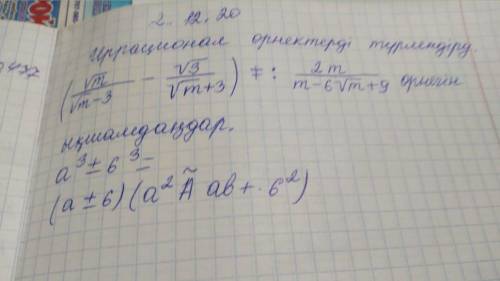 2. 12. 20
Иррационал өрнектерді түрлендіру.
(√m/(√m-3) - √3/(√m+3)) ≠ : 2m/(m-6√m+9) өрнегін
ықшамдаңдар.
a³±b³=
(a±b)(a² Ã ab+.b²)